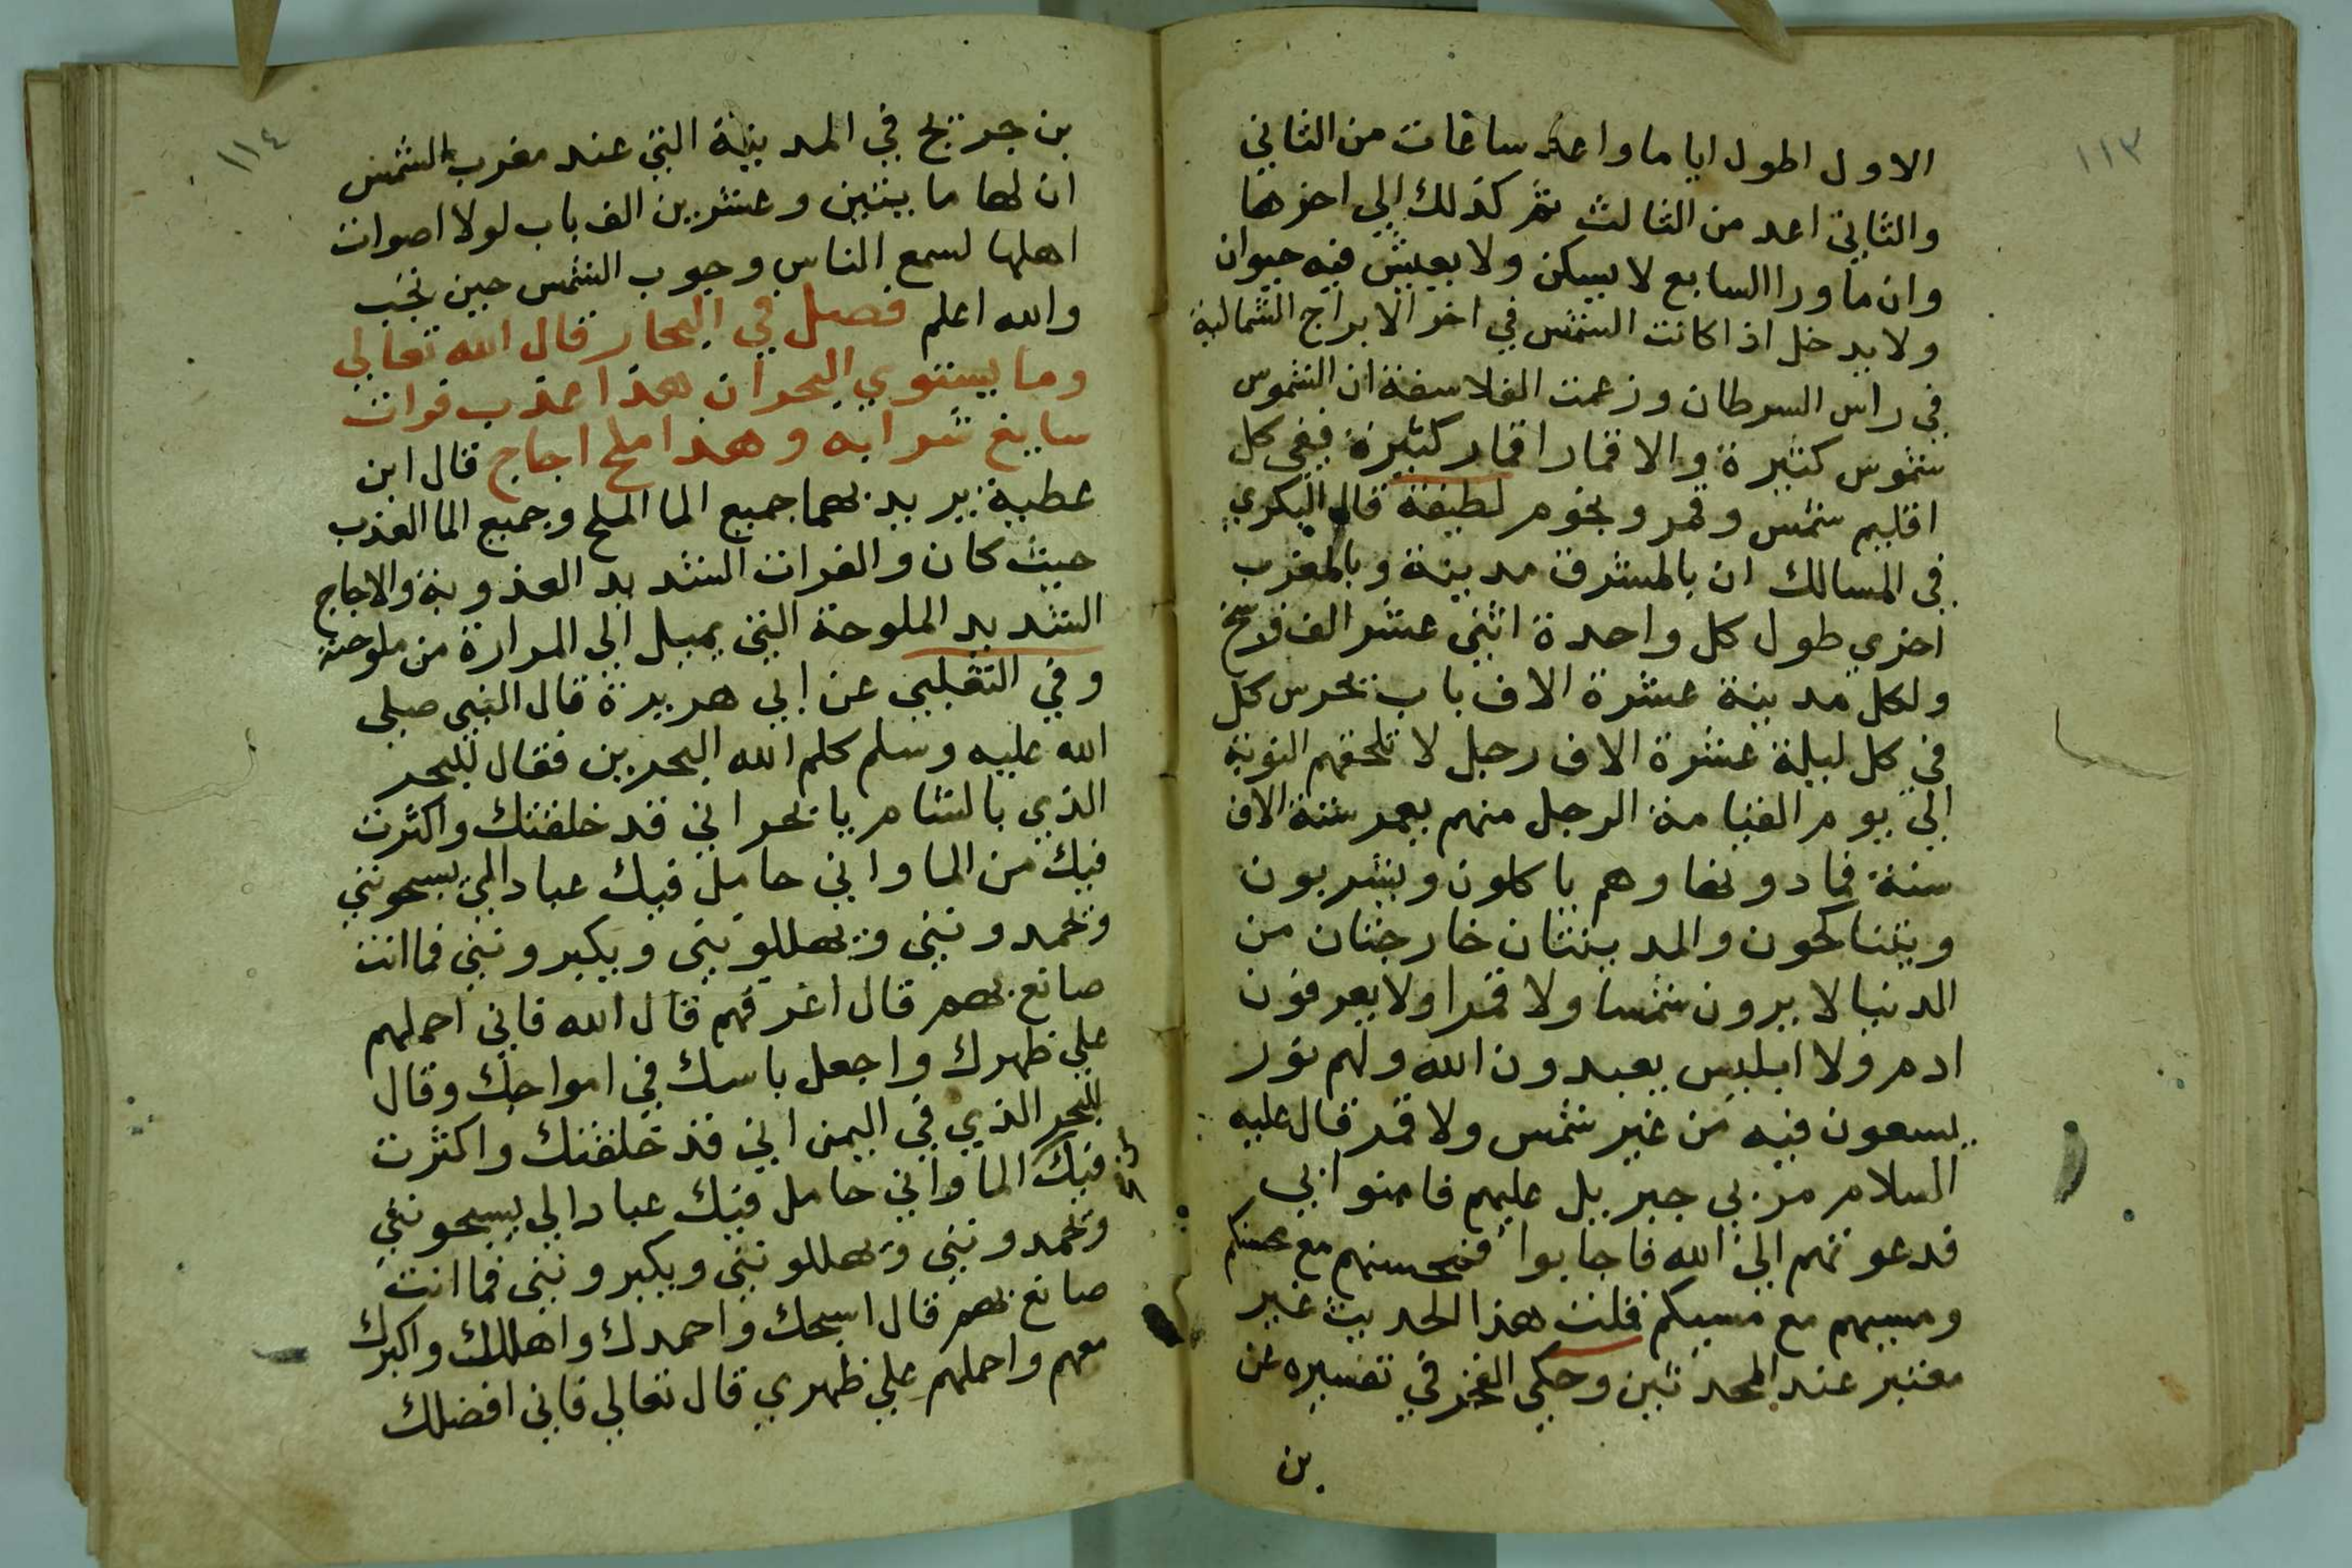 ١١٣
الاول اطول اياما واعد ساعات من الثاني
والثاني اعد من الثالث ثم كذلك الي اخرها
وان ما ورا السابع لا يسكن ولا يعيش فيه حيوان
ولا يدخل اذا كانت الشمس في اخر الابراج الشمالية
في راس السرطان وزعمت الفلاسفة ان الشموس
شموس كثيرة والاقمار اقمار كثيرة ففي كل
اقليم شمس وقمر ونجوم لطيفة قال البكري
في المسالك ان بالمشرق مدينة وبالمغرب
اخري طول كل واحدة اثني عشر الف فرسخ
ولكل مدينة عشرة الاف باب يحرس كل
في كل ليلة عشرة الاف رجل لا تلحقهم النوبة
الي يوم القيامة الرجل منهم يعمر ستة الاف
سنة فما دونها وهم ياكلون ويشربون
ويتناكحون والمدينتان خارجتان من
الدنيا لا يرون شمسا ولا قمرا ولا يعرفون
ادم ولا ابليس يعبدون الله ولهم نور
يسعون فيه من غير شمس ولا قمر قال عليه
السلام مر بي جبريل عليهم فامنوا بي
فدعوتهم الي الله فاجابوا فمحسنهم مع محسنكم
ومسيهم مع مسيكم قلت هذا الحديث غير
معتبر عند المحدثين وحكي الفخر في تفسيره عن
بن
١١٤
بن جريج في المدينة التي عند مغرب الشمس
ان لها مايتين وعشرين الف باب لولا اصوات
اهلها لسمع الناس وجوب الشمس حين تجب
والله اعلم فصل في البحار قال الله تعالي
وما يستوي البحران هذا عذب فرات
سايغ شرابه وهذا ملح اجاج قال ابن
عطية يريد بهما جميع الما الملح وجميع الما العذب
حيث كان والفرات الشديد العذوبة والاجاج
الشديد الملوحة التي يميل الي المرارة من ملوحته
وفي الثعلبي عن ابي هريرة قال النبي صلي
الله عليه وسلم كلم الله البحرين فقال للبحر
الذي بالشام يا بحر اني قد خلقتك واكثرت
فيك من الما واني حامل فيك عبادا لي يسبحونني
ويحمدونني ويهللونني ويكبرونني فما انت
صانع بهم قال اغرقهم قال الله فاني احملهم
علي ظهرك واجعل باسك في امواجك وقال
للبحر الذي في اليمن اني قد خلقتك واكثرت
فيك الما واني حامل فيك عبادا لي يسبحونني
ويحمدونني ويهللونني ويكبرونني فما انت
صانع بهم قال اسبحك واحمدك واهللك واكبرك
معهم واحملهم علي ظهري قال تعالي فاني افضلك